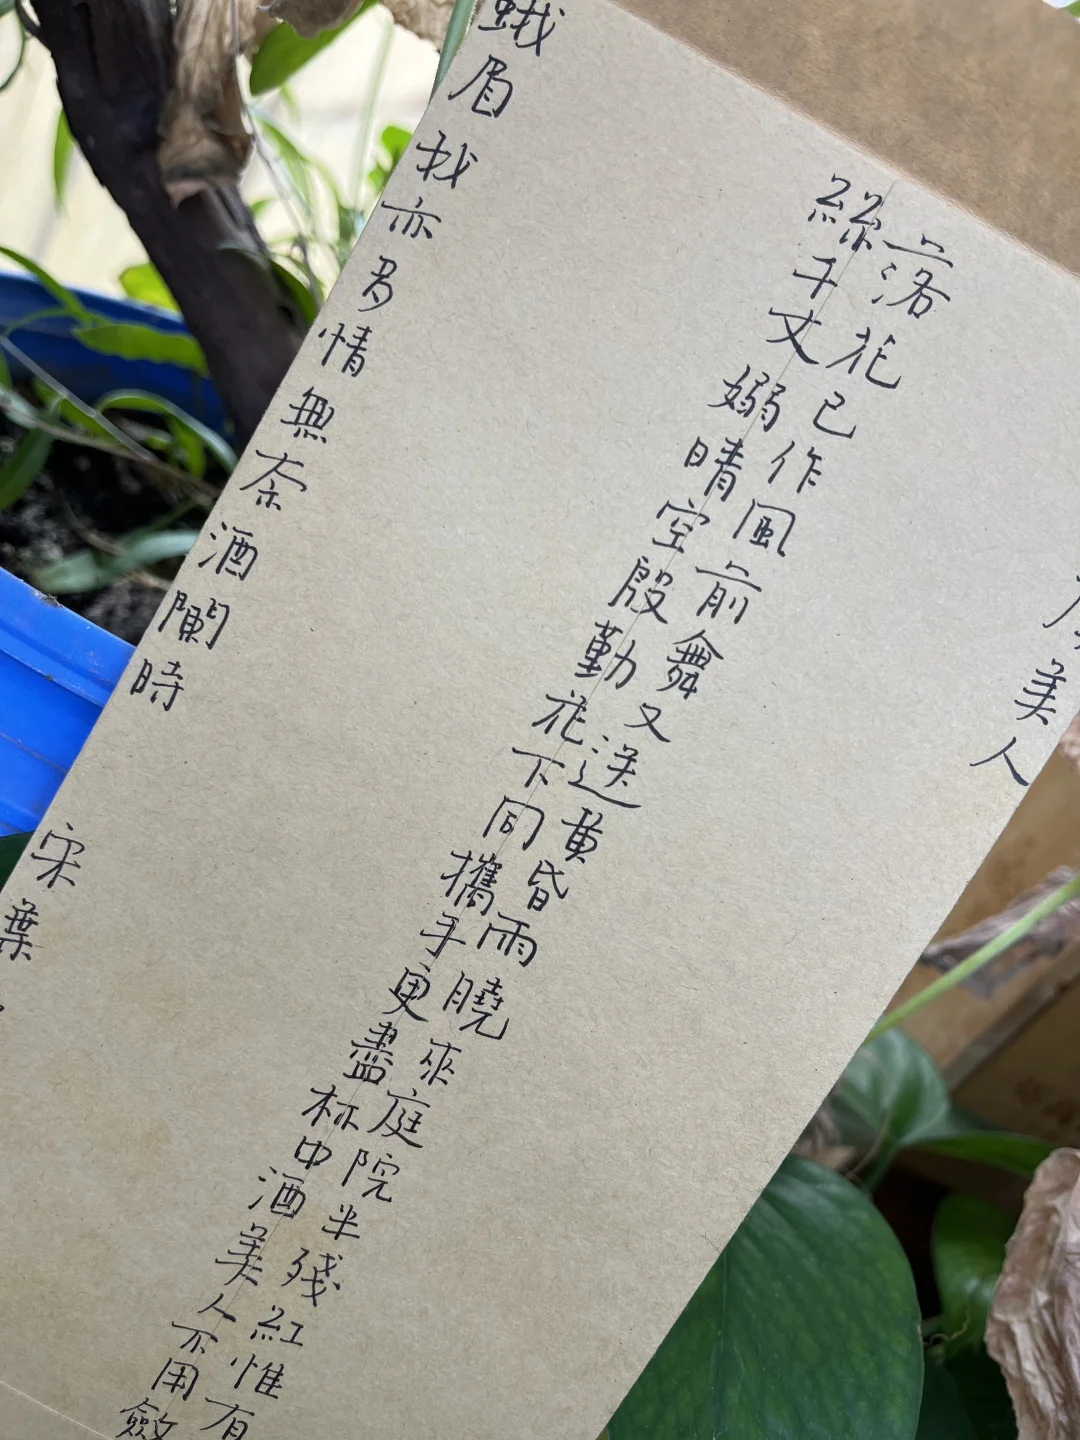 美人
落花已作風前舞又送黄昏雨曉來庭院半殘紅惟有
絲千丈嫋晴空殷勤花下同攜手更盡杯中酒美人不用斂
蛾眉我亦多情無奈酒闌時
宋葉